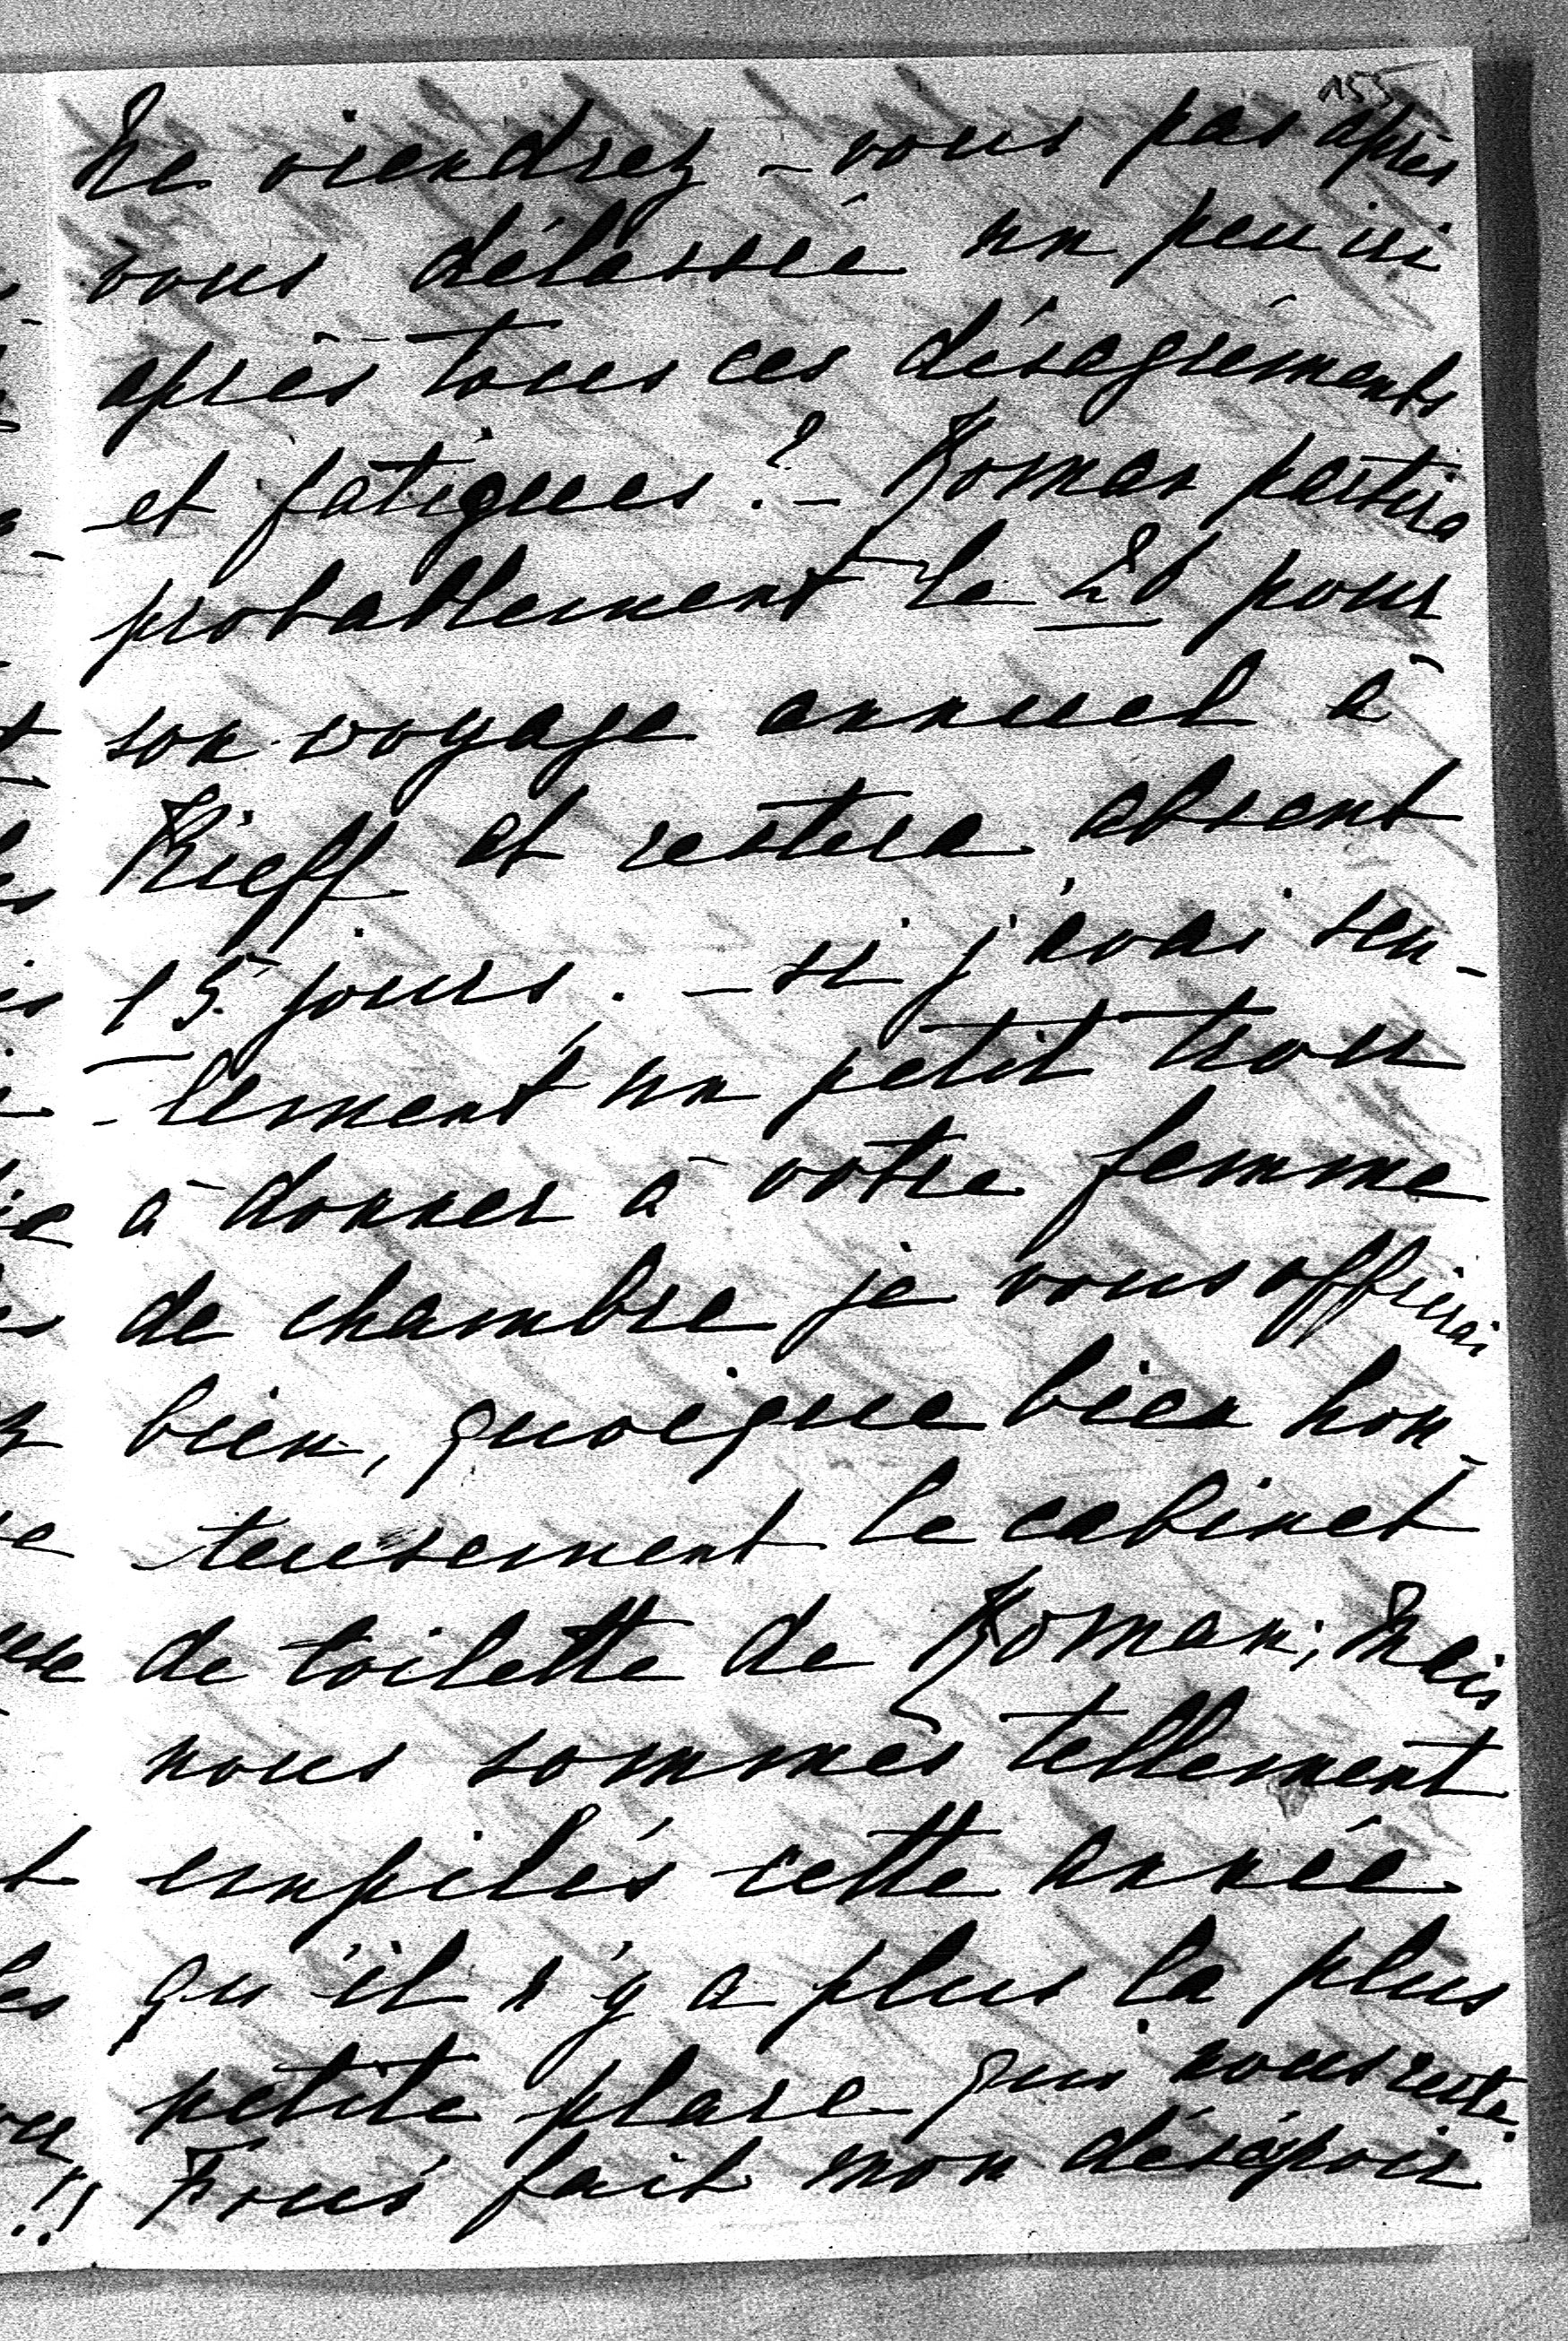 155
Ne viendrez-vous pas après
vous délassée un peu ici
après tous ces désagréments
et fatigues? - Roman partira
probablement le 26 pour
son voyage annuel à
Kieff et restera absent
15 jours. - si j'avai seu-
-lement un petit trou
à donner à votre femme
de chambre je vous offrirai
bien, quoique bien hon-
teusement le cabinet
de toilette de Roman; Mais
nous sommes tellement
empilés cette année
qu'il n'y a plus la plus
petite place qui nous reste.
fait mon désespoir